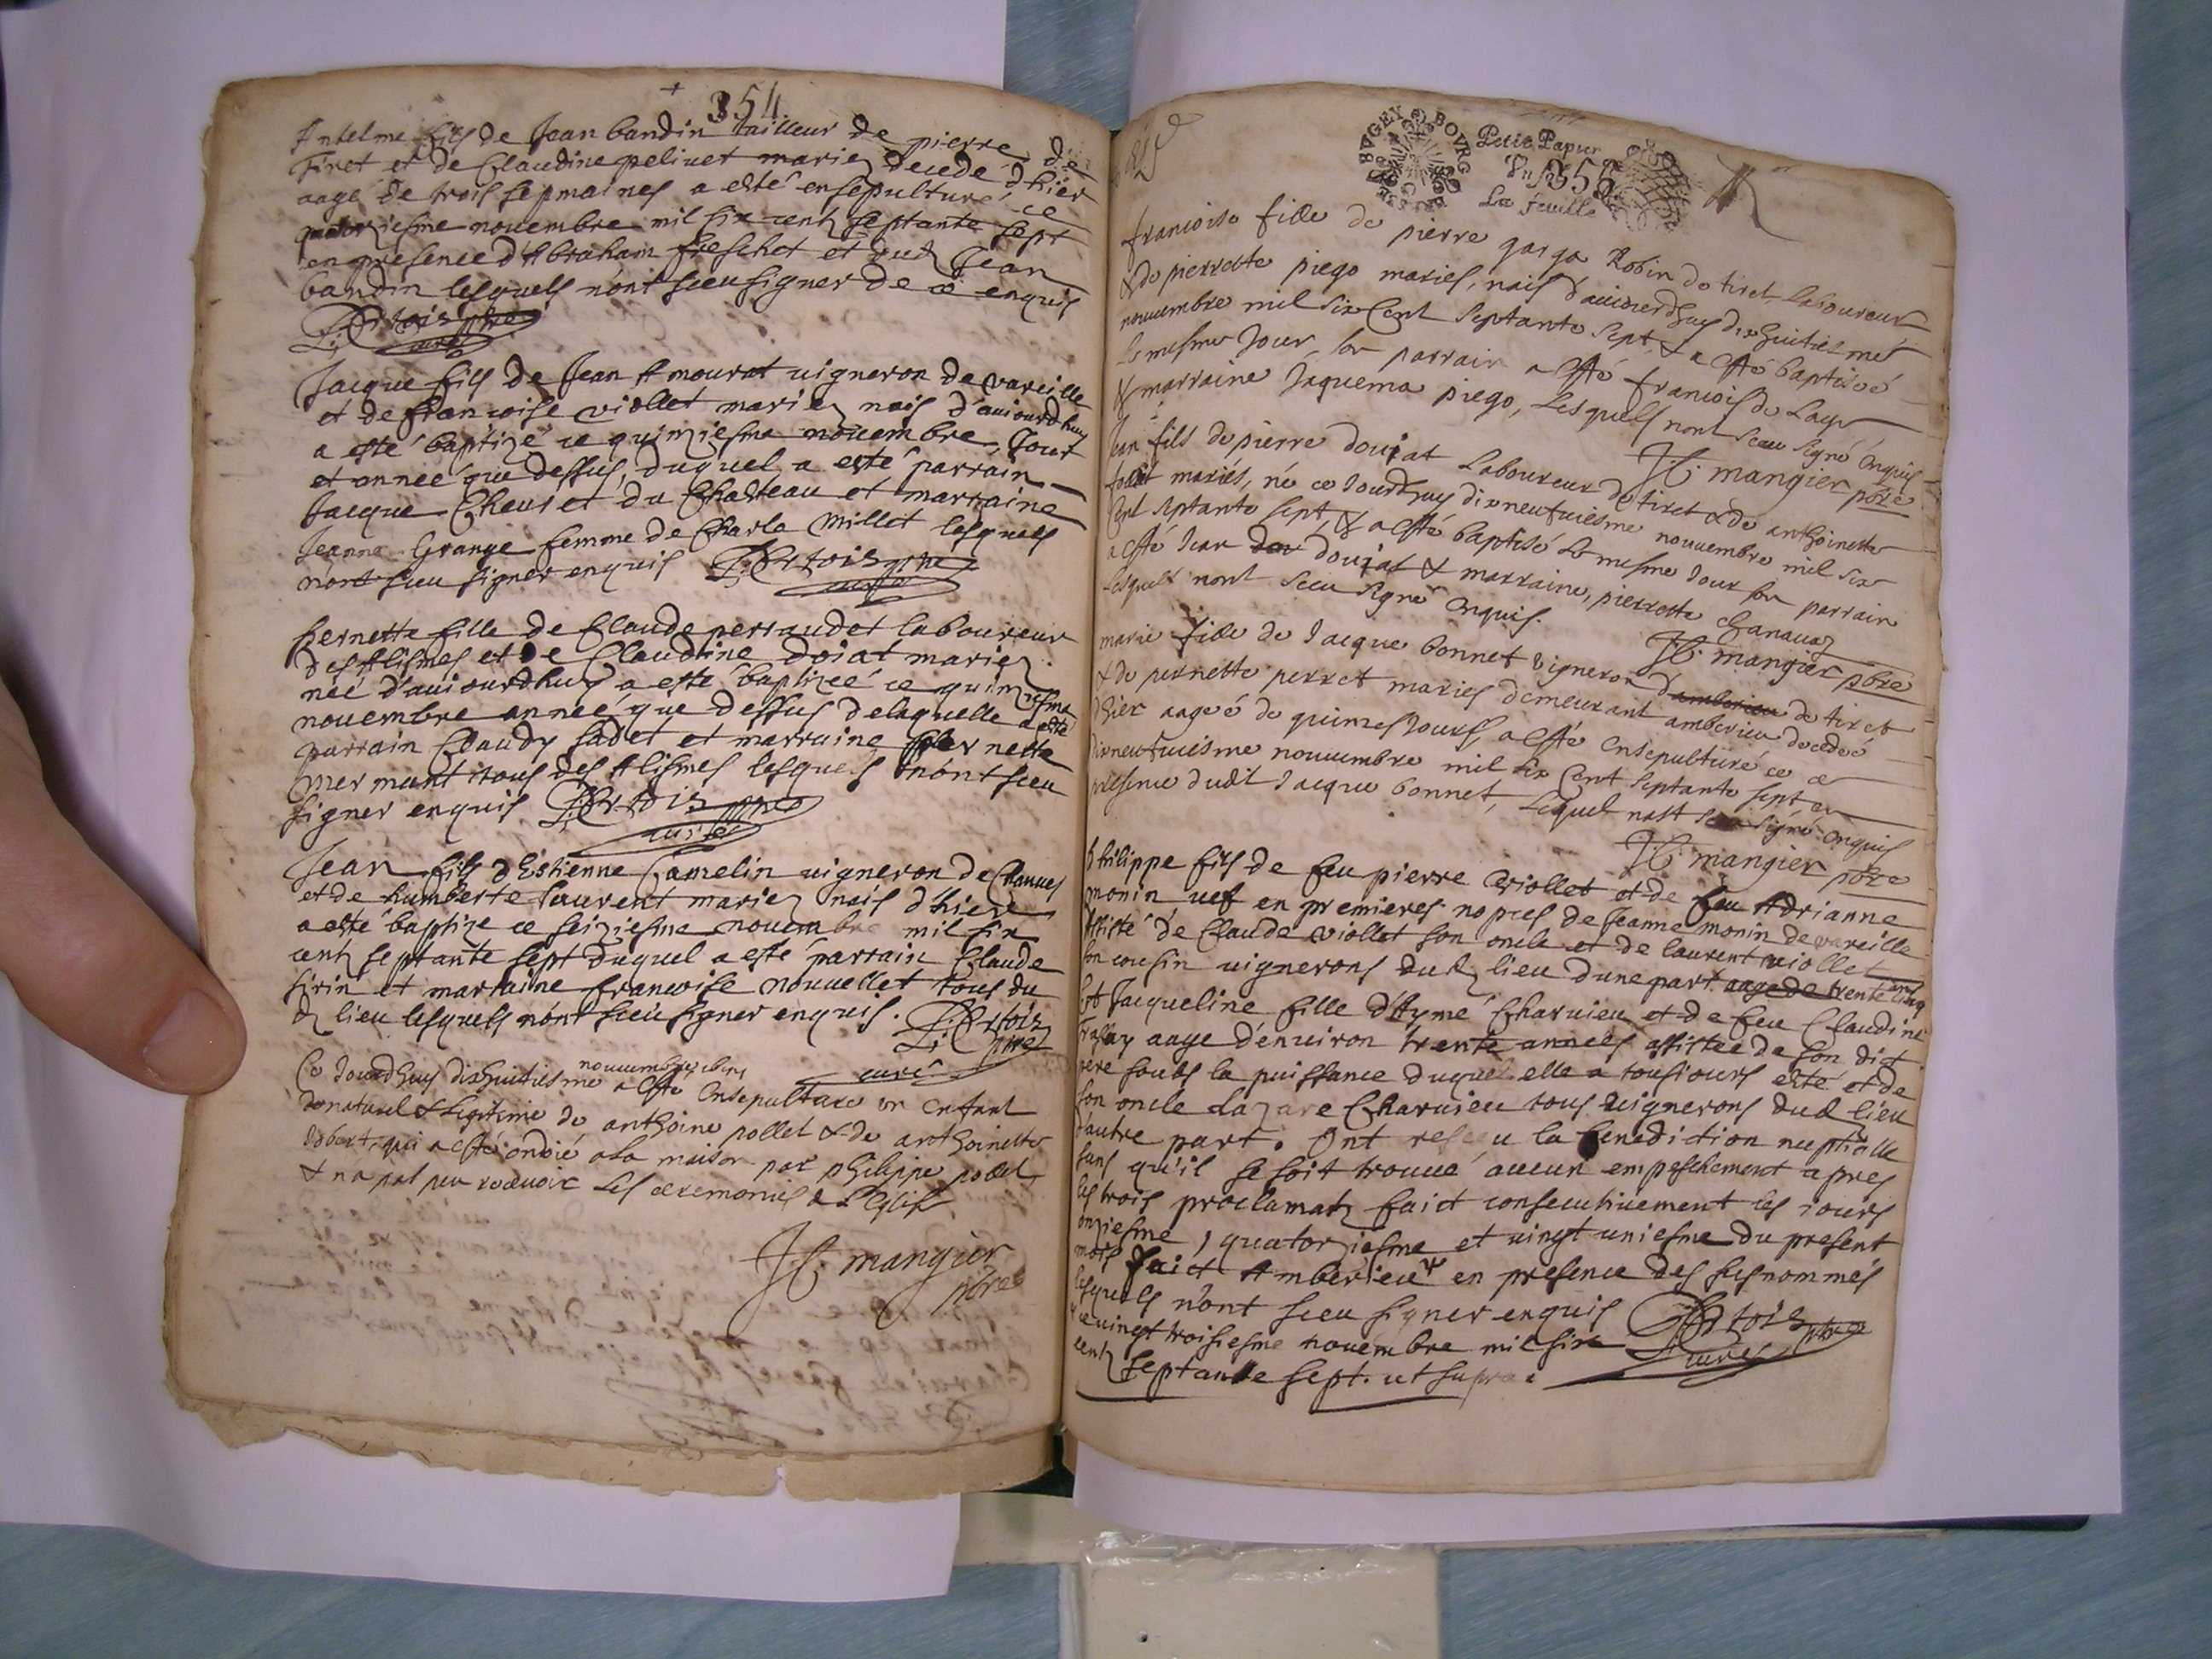 354
Antelme fils de Jean bandin tailleur de pierre de
Tiret et de Claudine pelivet mariez decedé d'hier
aagé de trois sepmaines a esté ensepulturé ce
quatorziesme novembre mil six centz septante sept
en presence d'Abraham freschet et dud Jean
bandin lesquels n'ont sceu signer de ce enquis
curé
Jacque fils de Jean Amourat vigneron de vareille
et de francoise viollet mariez nais d'aujourdhuy
a esté baptizé ce quinziesme novembre, Jour
et année que dessus, duquel a esté parrain
Jacque Chevs et du Chasteau et marraine
Jeanne Grange femme de Charle Millet lesquels
nont sceu signer enquis
pernette fille de Claude perraudet laboureur
des Alismes et de Claudine doiat mariez
née d'aujourdhuy a esté baptizeé ce quinziesme
novembre anneé que dessus delaquelle a esté
parrain Claudy Cadet et marraine pernette
mermant tous des Alismes lesquels n'ont sceu
signer enquis
Jean fils d'Estienne Camelin vigneron de Chanves
et de humberte laurent mariez nais d'hier
a esté baptize ce seiziesme novembre mil six
centz septante sept duquel a esté parrain Claude
sirin et marraine francoise nouvellet tous du
d lieu lesquels n'ont sceu signer enquis.
curé
Ce Jourdhuy dixhuitiesme novembre a esté Ensepulturé un enfant
donaturel & legitime de anthoine pollet & de anthoinette
Jobert, qui a esté ondoié a la maison par philippe pollet,
& na pas peu recevoir les ceremonies de L'Eglise
J C. mangier
pbre
BVGEY BOVRG
Petit Papier
Vn s
355
La feuille
francoise fille de pierre garga Robin de tiret, laboureur
& de pierrette piego mariés, nais d'aujourdhuy dixhuitiesme
novembre mil six Cent septante sept & a esté baptiseé
le mesme Jour, son parrain a esté francois de Lagr
& marraine Jaquema piego, lesquels nont sceu signé enquis
J C. mangier pbre
Jean fils de pierre doujat Laboureur de tiret & de anthoinette
mariés, né ce Jourdhuy dixneufviesme novembre mil six
Cent septante sept, & a esté baptisé le mesme Jour son parrain
a esté Jean doujat & marraine, pierrette chanavaz
lesquels nont sceu signé enquis.
J C. mangier pbre
marie fille de Jacque bonnet Vigneron d'amberieu de tiret
& de pernette perret mariés demeurant amberieu decedeé
d'hier aageé de quinze Jours, a esté Ensepulturé ce
dixneufviesme novembre mil six Cent septante sept, en
presence dudit Jacque bonnet, Lequel nast sceu signé enquis
J C. mangier pbre
philippe fils de feu pierre viollet et de feu Adrianne
monin vef en premieres nopces de Jeanne monin de vareille
assisté de Claude viollet son oncle et de laurent viollet
son cousin vignerons dud lieu dune part aage de trente cinq ans
Et Jacqueline fille d'Aymé Charvieu et de feu Claudine
aage d'environ trente anneés assistée de son dict
pere soubs la puissance duquel elle a tousiours esté et de
son oncle Lazare Charvieu tous vignerons dud lieu
d'autre part. Ont receu la benediction nuptialle
sans qu'il se soit trouvé aucun empeschement apres
les trois proclamatz faict consecutivement les iours
onziesme, quatorziesme et vingt uniesme du present
mois faict Amberieu en presence des susnommés
lesquels n'ont sceu signer enquis
ce vingt troisiesme novembre mil six
centz septante sept. ut supra.
curé